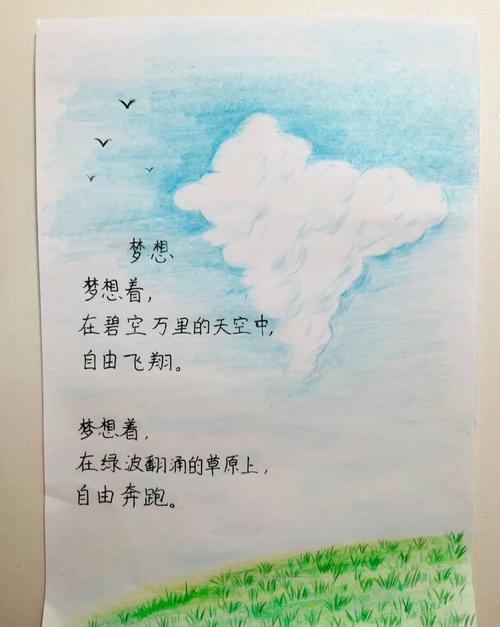 梦想
梦想着，
在碧空万里的天空中，
自由飞翔。
梦想着，
在绿波翻涌的草原上，
自由奔跑。